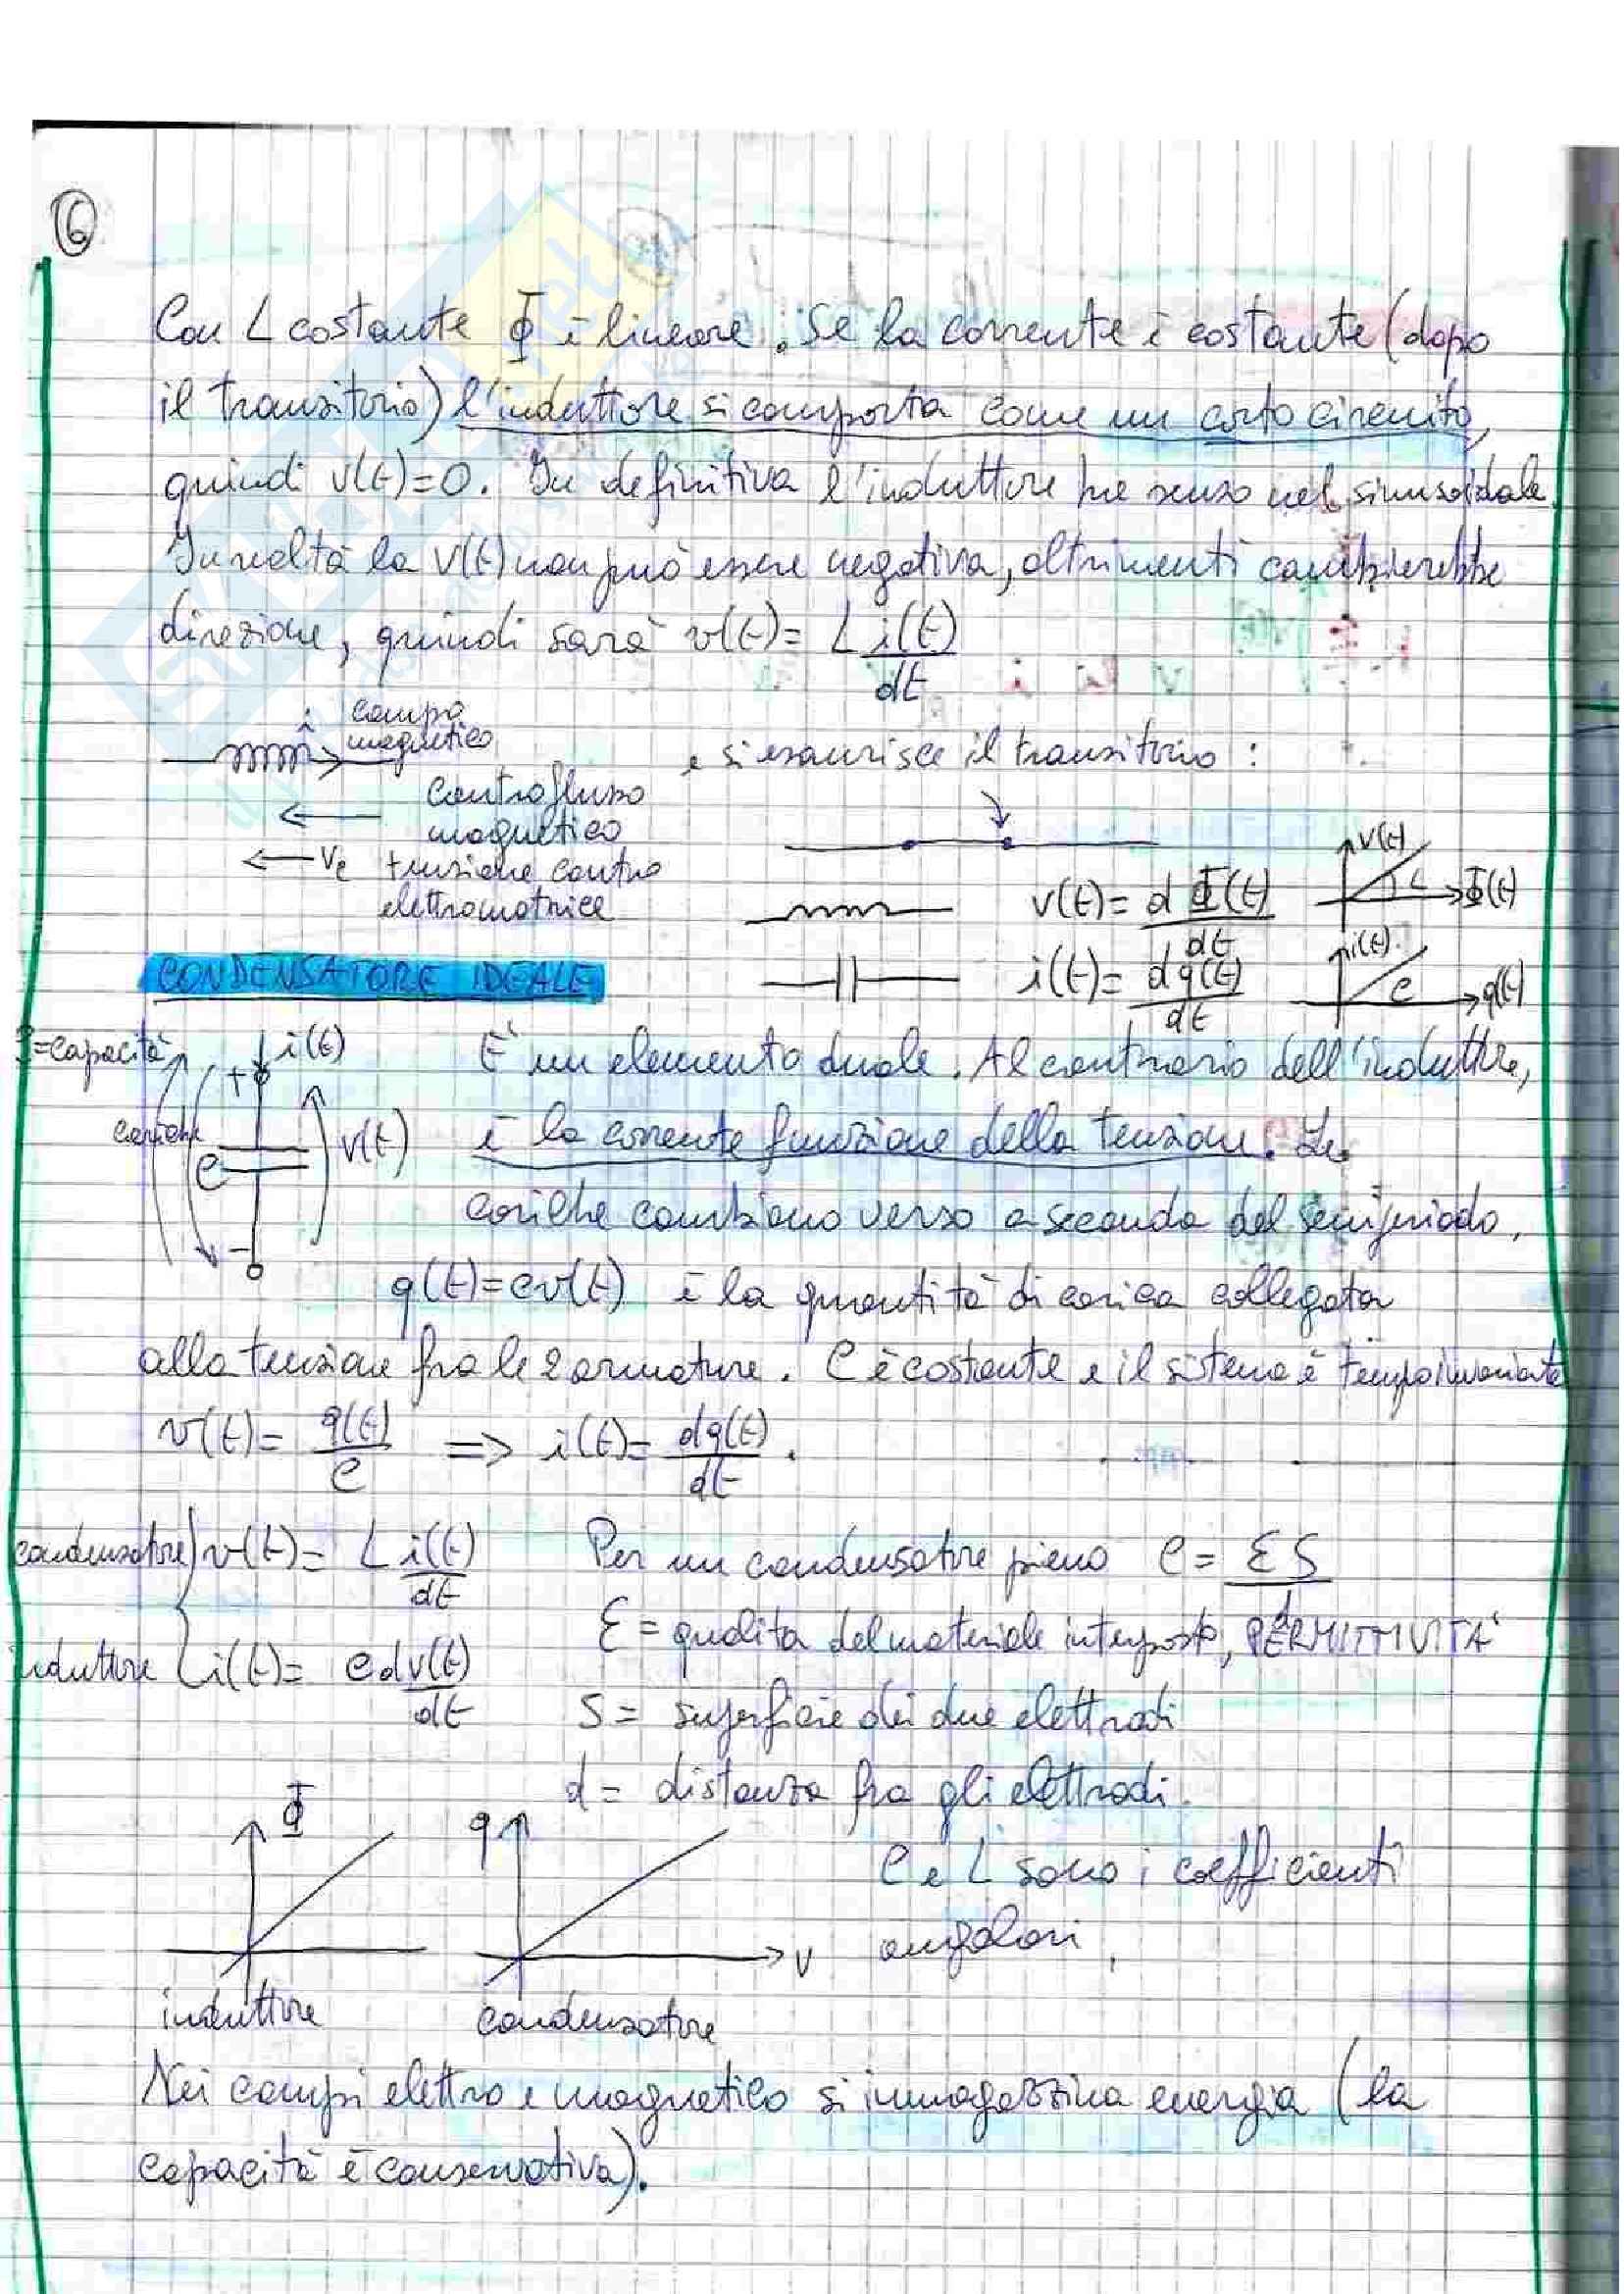 6
Con L costante Φ è lineare. Se la corrente è costante (dopo
il transitorio) l'induttore si comporta come un corto circuito,
quindi v(t)=0. In definitiva l'induttore ha senso nel sinusoidale.
In realtà la v(t) non può essere negativa, altrimenti cambierebbe
direzione, quindi sarà v(t)= L i(t)/dt
i campo
magnetico
controflusso
magnetico
Ve tensione contro
elettromotrice
e si esaurisce il transitorio:
v(t)= dΦ(t)/dt
v(t) L Φ(t)
i(t)= dq(t)/dt
i(t) C q(t)
CONDENSATORE IDEALE
=capacità
+ i(t)
cariche C v(t)
−
È un elemento duale. Al contrario dell'induttore,
è la corrente funzione della tensione. Le
cariche cambiano verso a seconda del semiperiodo.
q(t)=Cv(t) è la quantità di carica collegata
alla tensione fra le 2 armature. C è costante e il sistema è tempo invariante
v(t)= q(t)/C => i(t)= dq(t)/dt.
condensatore v(t)= L i(t)/dt
induttore i(t)= C dv(t)/dt
Per un condensatore pieno C= ES/d
E = qualita del materiale interposto, PERMITTIVITA'
S= superficie dei due elettrodi
d= distanza fra gli elettrodi.
Φ
induttore
q
V
condensatore
C e L sono i coefficienti
angolari.
Nei campi elettro e magnetico si immagazzina energia (la
capacità è conservativa).